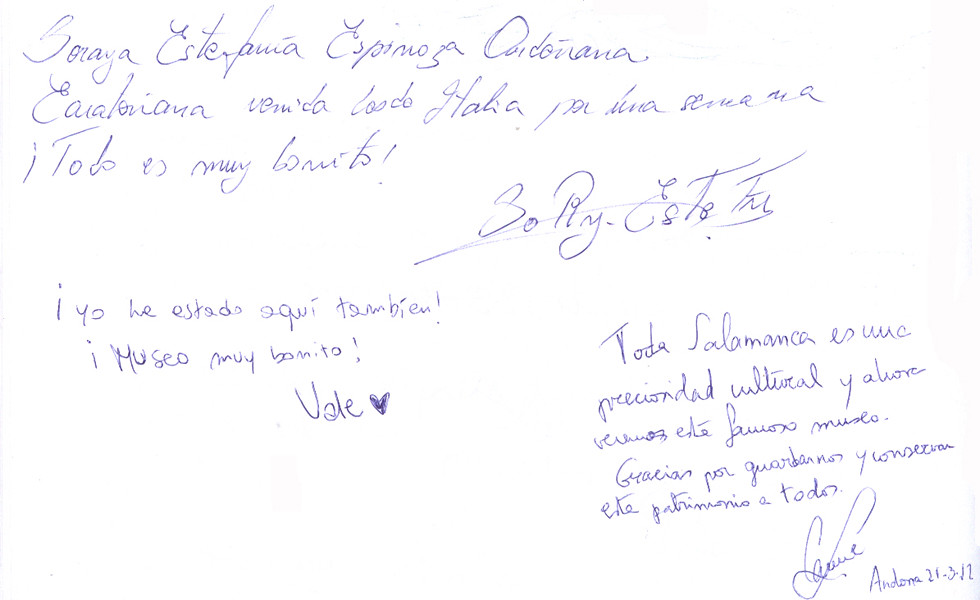 Soraya Estefanía Espinoza Ordoñana
Ecuatoriana venida desde Italia por una semana
¡Todo es muy bonito!
¡yo he estado aquí también!
¡Museo muy bonito!
Vale
Toda Salamanca es una
preciosidad cultural y ahora
veremos este famoso museo.
Gracias por guardarnos y conservar
este patrimonio a todos.
Andorra 21-3-12